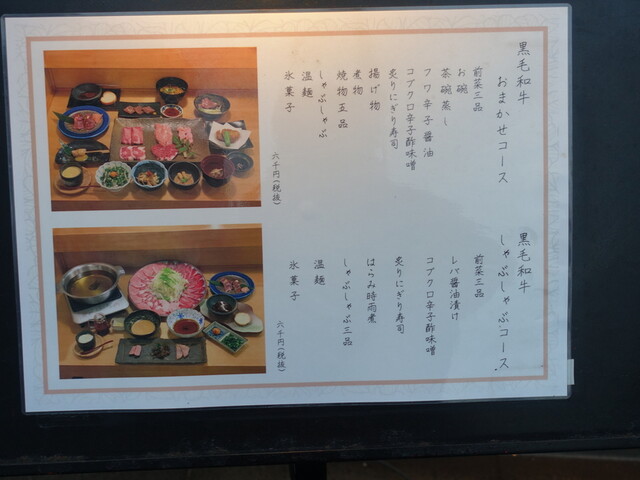 黒毛和牛
おまかせコース
前菜三品
お椀
茶碗蒸し
フワ辛子醤油
コブクロ辛子酢味噌
炙りにぎり寿司
揚げ物
煮物
焼物五品
しゃぶしゃぶ
温麺
氷菓子
六千円(税抜)
黒毛和牛
しゃぶしゃぶコース
前菜三品
レバ醤油漬け
コブクロ辛子酢味噌
炙りにぎり寿司
はらみ時雨煮
しゃぶしゃぶ三品
温麺
氷菓子
六千円(税抜)